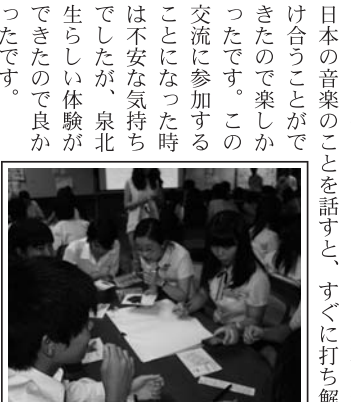 日本の音楽のことを話すと、すぐに打ち解
け合うことがで
きたので楽しか
ったです。この
交流に参加する
ことになった時
は不安な気持ち
でしたが、泉北
生らしい体験が
できたので良か
ったです。